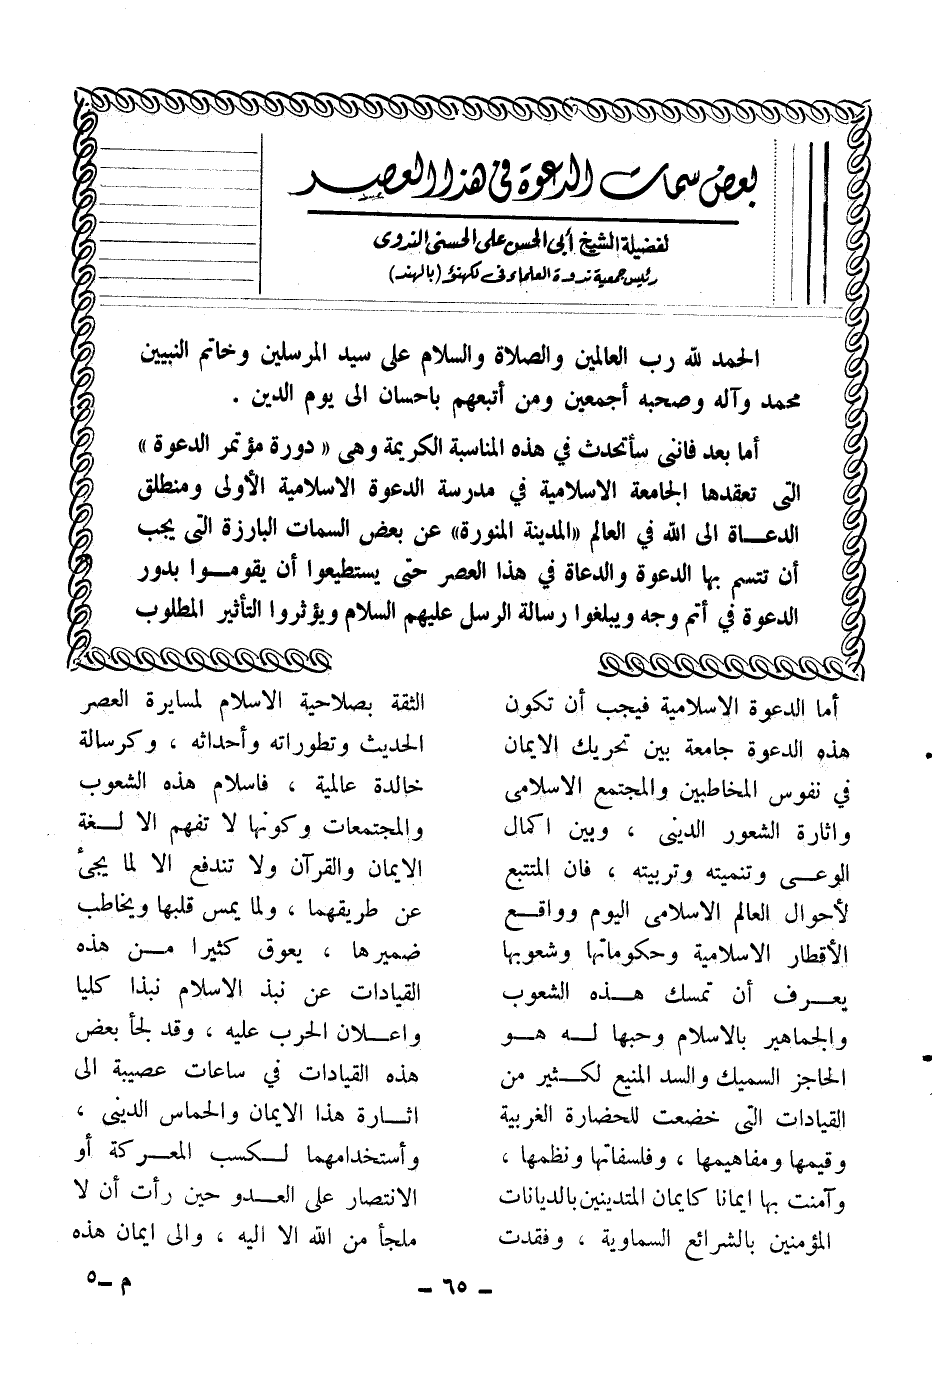 بعض سمات الدعوة في هذا العصر
لفضيلة الشيخ أبي الحسن علي الحسني الندوي
رئيس جمعية ندوة العلماء في لكهنؤ (بالهند)
الحمد لله رب العالمين والصلاة والسلام على سيد المرسلين وخاتم النبيين
محمد وآله وصحبه أجمعين ومن أتبعهم باحسان الى يوم الدين .
أما بعد فانى سأتحدث في هذه المناسبة الكريمة وهى « دورة مؤتمر الدعوة »
التى تعقدها الجامعة الاسلامية في مدرسة الدعوة الاسلامية الأولى ومنطلق
الدعـــاة الى الله في العالم «المدينة المنورة» عن بعض السمات البارزة التى يجب
أن تتسم بها الدعوة والدعاة في هذا العصر حتى يستطيعوا أن يقومـــوا بدور
الدعوة في أتم وجه ويبلغوا رسالة الرسل عليهم السلام ويؤثروا التأثير المطلوب
أما الدعوة الاسلامية فيجب أن تكون
هذه الدعوة جامعة بين تحريك الايمان
في نفوس المخاطبين والمجتمع الاسلامى
واثارة الشعور الدينى ، وبين اكمال
الوعـــى وتنميته وتربيته ، فان المتتبع
لأحوال العالم الاسلامى اليوم وواقـــع
الأقطار الاسلامية وحكوماتها وشعوبها
يعـــرف أن تمسك هـــذه الشعوب
والجماهير بالاسلام وحبها لـــه هـــو
الحاجز السميك والسد المنيع لكـــثير من
القيادات التى خضعت للحضارة الغربية
وقيمها ومفاهيمها ، وفلسفاتها ونظمها ،
وآمنت بها ايمانا كايمان المتدينين بالديانات
المؤمنين بالشرائع السماوية ، وفقدت
الثقة بصلاحية الاسلام لمسايرة العصر
الحديث وتطوراته وأحداثه ، وكرسالة
خالدة عالمية ، فاسلام هذه الشعوب
والمجتمعات وكونها لا تفهم الا لـــغة
الايمان والقرآن ولا تندفع الا لما يجئ
عن طريقهما ، ولما يمس قلبها ويخاطب
ضميرها ، يعوق كثيرا مـــن هذه
القيادات عن نبذ الاسلام نبذا كليا
واعـــلان الحرب عليه ، وقد لجأ بعض
هذه القيادات في ساعات عصيبة الى
اثـــارة هذا الايمان والحماس الدينى ،
وأستخدامهما لـــكسب المعـــركة أو
الانتصار على العـــدو حين رأت أن لا
ملجأ من الله الا اليه ، والى ايمان هذه
– ٦٥ –
م –٥